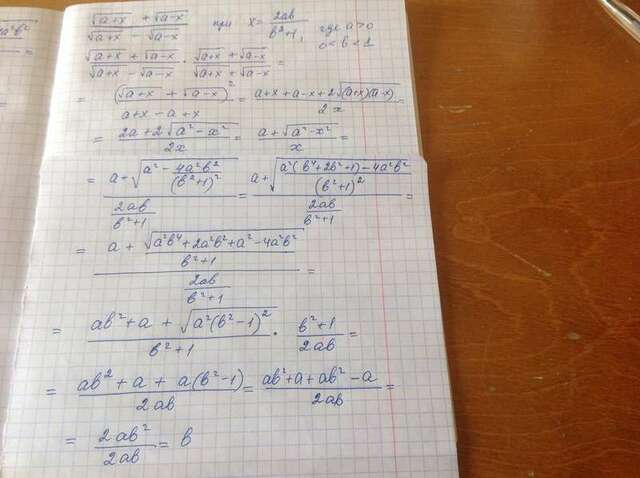 (√(a+x) + √(a-x))/(√(a+x) - √(a-x)) при x = 2ab/(b²+1), где a>0
0<b<1
(√(a+x) + √(a-x))/(√(a+x) - √(a-x)) · (√(a+x) + √(a-x))/(√(a+x) + √(a-x)) =
= (√(a+x) + √(a-x))²/(a+x-a+x) = (a+x+a-x+2√((a+x)(a-x)))/(2x) =
= (2a+2√(a²-x²))/(2x) = (a+√(a²-x²))/x =
= (a+√(a² - 4a²b²/(b²+1)²))/(2ab/(b²+1)) = (a+√((a²(b⁴+2b²+1)-4a²b²)/(b²+1)²))/(2ab/(b²+1)) =
= (a + √(a²b⁴+2a²b²+a²-4a²b²)/(b²+1))/(2ab/(b²+1)) =
= (ab²+a+√(a²(b²-1)²))/(b²+1) · (b²+1)/(2ab) =
= (ab²+a+a(b²-1))/(2ab) = (ab²+a+ab²-a)/(2ab) =
= 2ab²/2ab = b